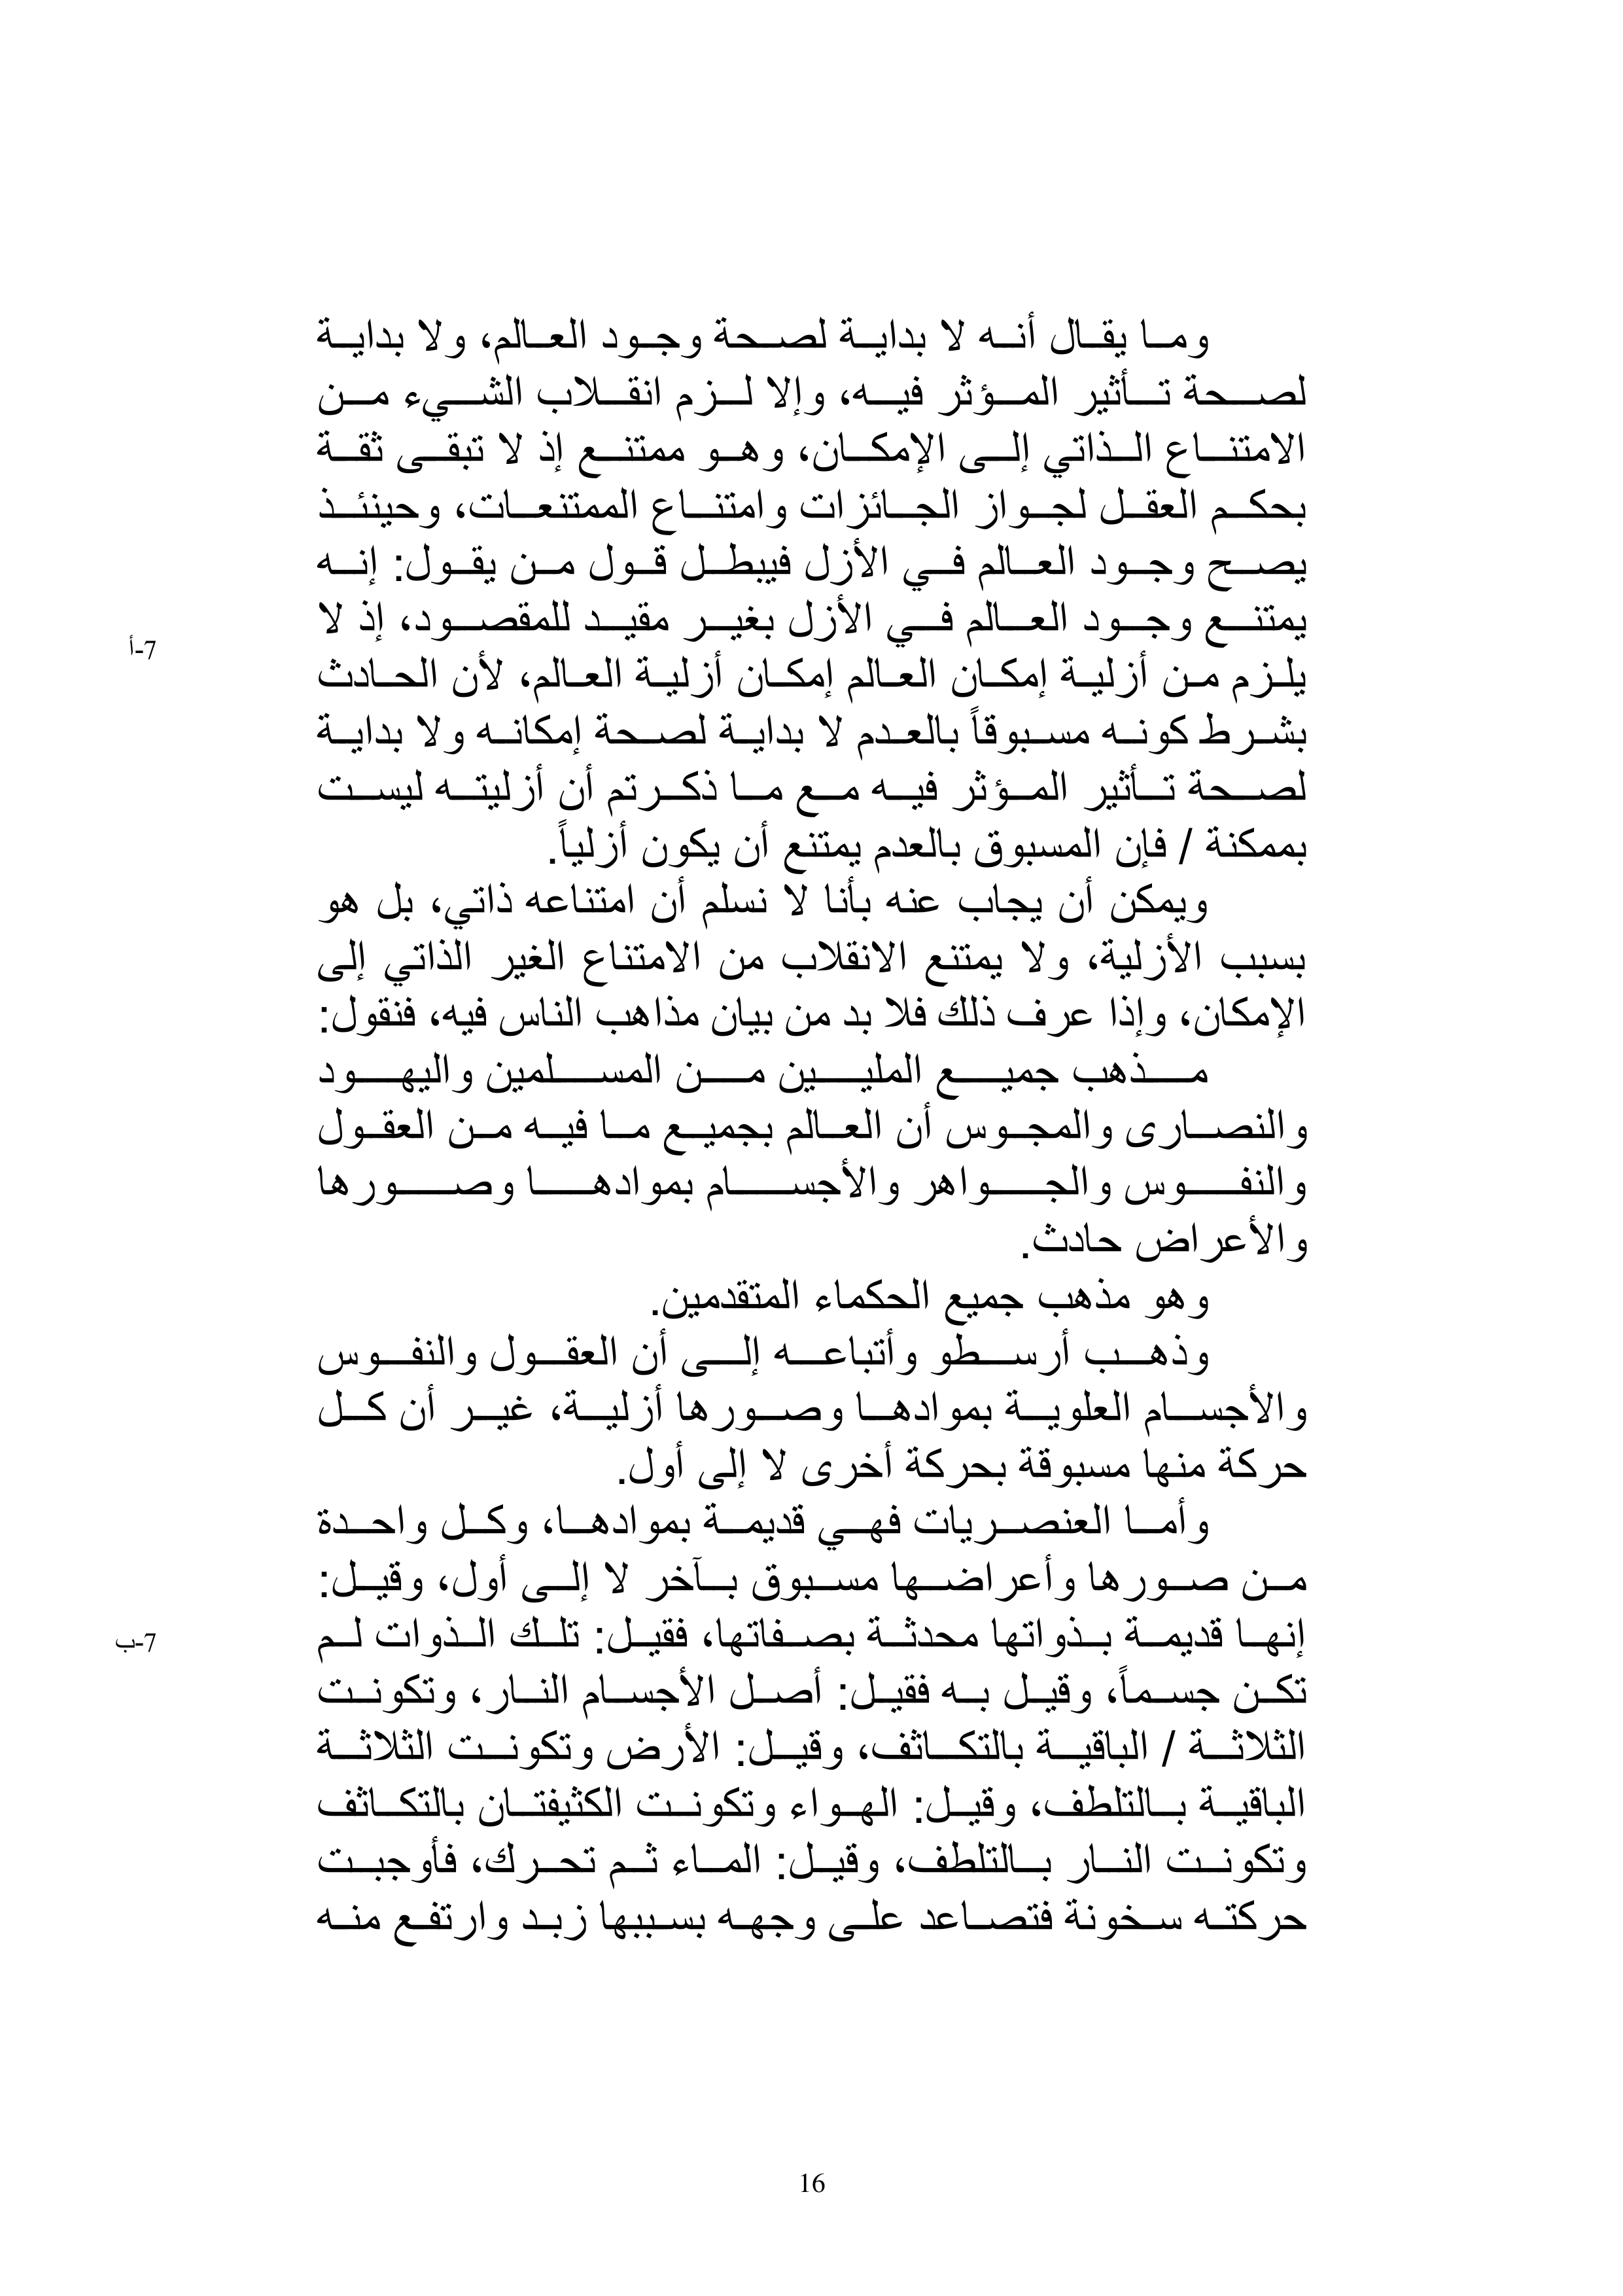 وما يقال أنه لا بداية لصحة وجود العالم، ولا بداية
لصحة تأثير المؤثر فيه، وإلا لزم انقلاب الشيء من
الامتناع الذاتي إلى الإمكان، وهو ممتنع إذ لا تبقى ثقة
بحكم العقل لجواز الجائزات وامتناع الممتنعات، وحينئذ
يصح وجود العالم في الأزل فيبطل قول من يقول: إنه
يمتنع وجود العالم في الأزل بغير مقيد للمقصود، إذ لا
7-أ
يلزم من أزلية إمكان العالم إمكان أزلية العالم، لأن الحادث
بشرط كونه مسبوقاً بالعدم لا بداية لصحة إمكانه ولا بداية
لصحة تأثير المؤثر فيه مع ما ذكرتم أن أزليته ليست
بممكنة / فإن المسبوق بالعدم يمتنع أن يكون أزلياً.
ويمكن أن يجاب عنه بأنا لا نسلم أن امتناعه ذاتي، بل هو
بسبب الأزلية، ولا يمتنع الانقلاب من الامتناع الغير الذاتي إلى
الإمكان، وإذا عرف ذلك فلا بد من بيان مذاهب الناس فيه، فنقول:
مذهب جميع المليين من المسلمين واليهود
والنصارى والمجوس أن العالم بجميع ما فيه من العقول
والنفوس والجواهر والأجسام بموادها وصورها
والأعراض حادث.
وهو مذهب جميع الحكماء المتقدمين.
وذهب أرسطو وأتباعه إلى أن العقول والنفوس
والأجسام العلوية بموادها وصورها أزلية، غير أن كل
حركة منها مسبوقة بحركة أخرى لا إلى أول.
وأما العنصريات فهي قديمة بموادها، وكل واحدة
من صورها وأعراضها مسبوق بآخر لا إلى أول، وقيل:
إنها قديمة بذواتها محدثة بصفاتها، فقيل: تلك الذوات لم
7-ب
تكن جسماً، وقيل به فقيل: أصل الأجسام النار، وتكونت
الثلاثة / الباقية بالتكاثف، وقيل: الأرض وتكونت الثلاثة
الباقية بالتلطف، وقيل: الهواء وتكونت الكثيفتان بالتكاثف
وتكونت النار بالتلطف، وقيل: الماء ثم تحرك، فأوجبت
حركته سخونة فتصاعد على وجهه بسببها زبد وارتفع منه
16